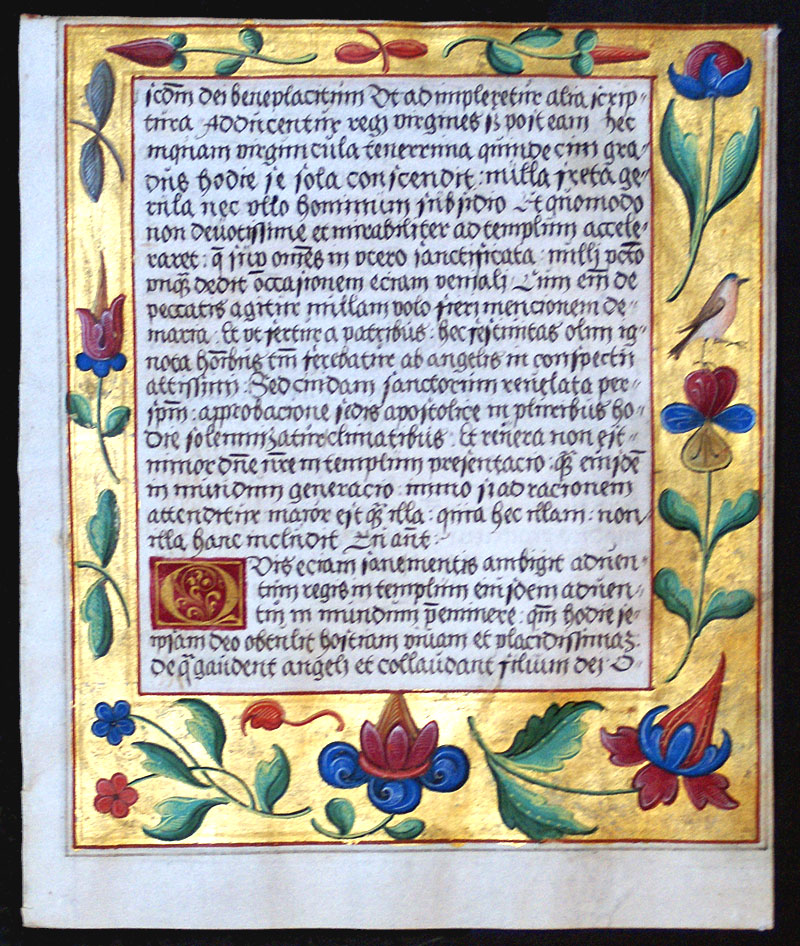 scd̄m dei beneplacitum Vt ad impleretur alia scrip⸗
tura Adducentur regi virgines ꝫ post eam hec
inquam virguncula tenerrima quindecim gra⸗
dus hodie se sola conscendit : nulla freta ge⸗
rula nec vllo hominum subsidio Et quomodo
non deuotissime et mirabiliter ad templum accele⸗
raret : q̄ sup om̄es in vtero sanctificata : nulli pctō
vnqȝ dedit ōccasionem eciam veniali Cum em̄ de
peccatis agitur nullam volo fieri mencionem de⸗
maria . Et vt fertur a patribus : hec festiuitas olim ig⸗
nota hoībus tm̄ ferebatur ab angelis in conspectu
altissimi . Sed cuidam sanctorum reuelata per⸗
ipm̄ : approbacione sedis apostolice in pluribus ho⸗
die solemnizatur climatibus . Et reuera non est⸗
minor dn̄e nr̄e in templum presentacio : qȝ eiusdē
in mundum generacio : immo si ad racionem
attenditur maior est qȝ illa : quia hec illam : non⸗
illa hanc includit En ant :
Qvis eciam sane mentis ambigit aduen⸗
tum regis in templum eiusdem aduen⸗
tu in mundum p̄eminere : qm̄ hodie se⸗
ipsam deo obtulit hostiam viuam et placidissimaȝ
de q̄ gaudent angeli et collaudant filium dei O⸗